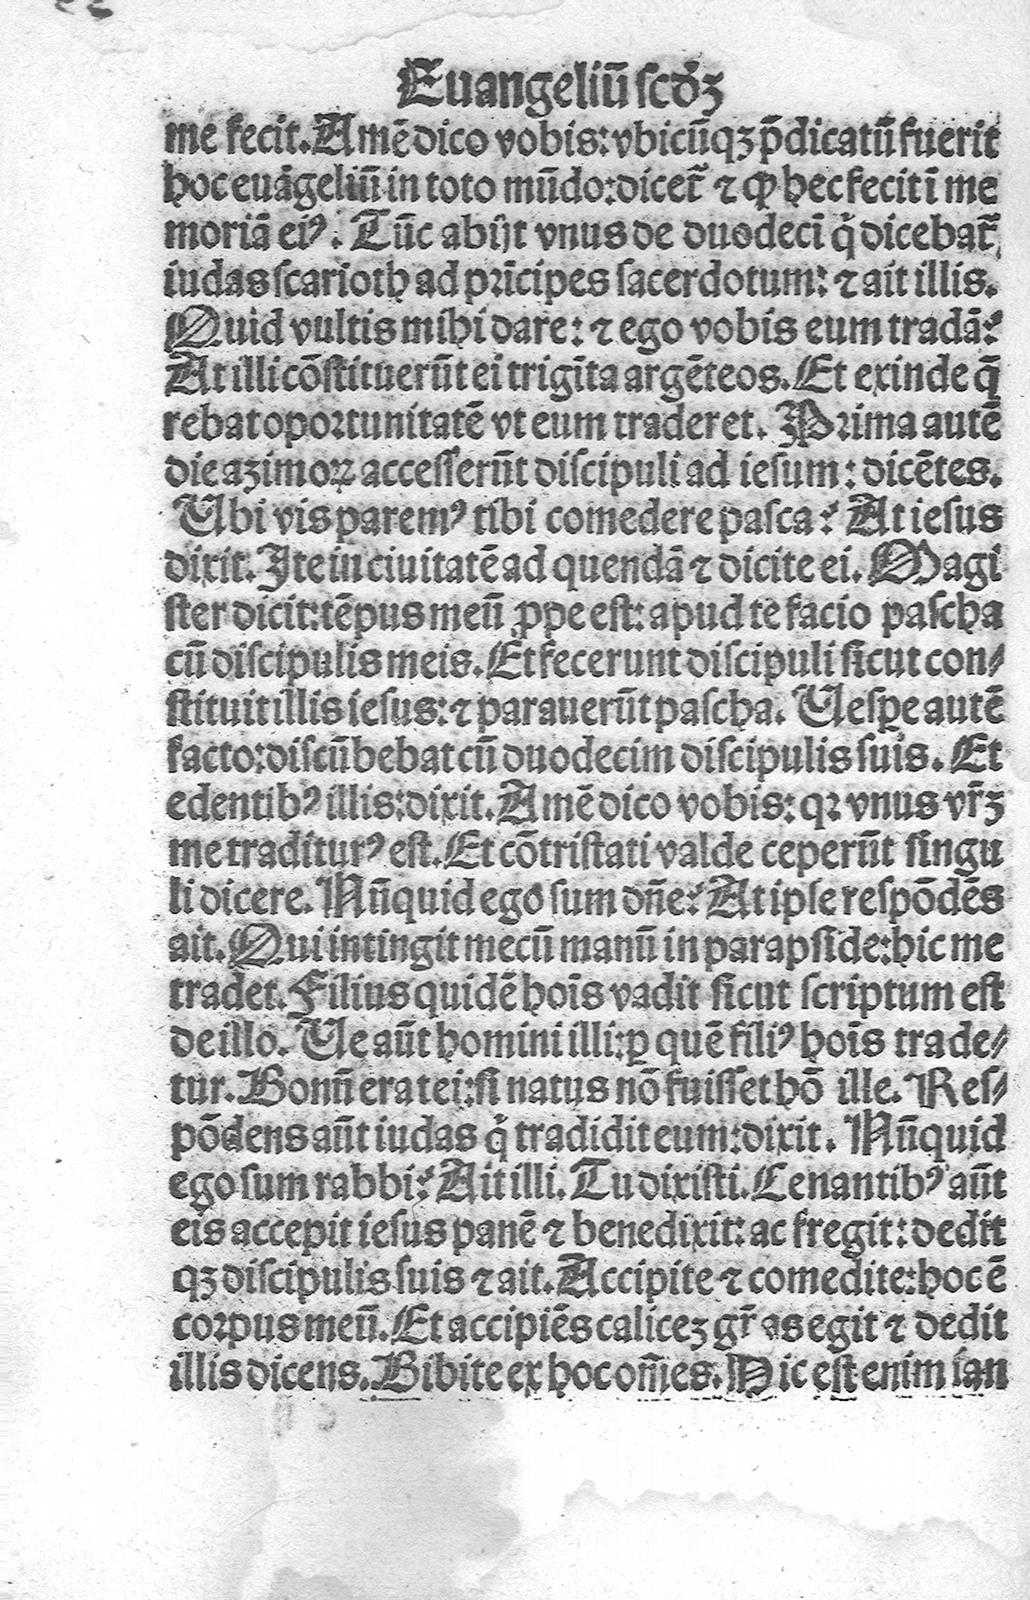 Euangeliū ſcdꝫ
me fecit. Amē dico vobis: vbicūqꝫ p̄dicatū fuerit
hoc euāgeliū in toto mūdo: dicet̃ ⁊ ꝙ hec fecit ī me
moriā eiꝰ. Tūc abijt vnus de duodecī q̇ dicebat̃
iudas ſcarioth ad prīcipes ſacerdotum: ⁊ ait illis.
Quid vultis mihi dare: ⁊ ego vobis eum tradā?
At illi cōſtituerūt ei trigīta argēteos. Et exinde q̄
rebat oportunitatē vt eum traderet. Prima autē
die azimoꝝ acceſſerūt diſcipuli ad ieſum: dicētes.
Ubi vis paremꝰ tibi comedere paſca? At ieſus
dixit. Ite in ciuitatē ad quendā ⁊ dicite ei. Magi
ſter dicit: tēpus meū ꝓpe eſt: apud te facio paſcha
cū diſcipulis meis. Et fecerunt diſcipuli ſicut con⸗
ſtituit illis ieſus: ⁊ parauerūt paſcha. Ueſꝑe autē
facto: diſcūbebat cū duodecim diſcipulis ſuis. Et
edentibꝰ illis: dixit. Amē dico vobis: qꝛ vnus vr̄ꝫ
me traditurꝰ eſt. Et cōtriſtati valde ceperūt ſingu
li dicere. Nūquid ego ſum dn̄e? At ipſe reſpōdēs
ait. Qui intingit mecū manū in parapſide: hic me
tradet. Filius quidē hoīs vadit ſicut ſcriptum eſt
de illo. Ue aūt homini illi: ꝑ quē filiꝰ hoīs trade⸗
tur. Bonū erat ei: ſi natus nō fuiſſet hō ille. Reſ⸗
pōdens aūt iudas q̇ tradidit eum: dixit. Nūquid
ego ſum rabbi? Ait illi. Tu dixiſti. Cenantibꝰ aūt
eis accepit ieſus panē ⁊ benedixit: ac fregit: dedit
qꝫ diſcipulis ſuis ⁊ ait. Accipite ⁊ comedite: hoc ē
corpus meū. Et accipiēs caliceꝫ gr̄as egit ⁊ dedit
illis dicens. Bibite ex hoc om̄es. Hic eſt enim ſan